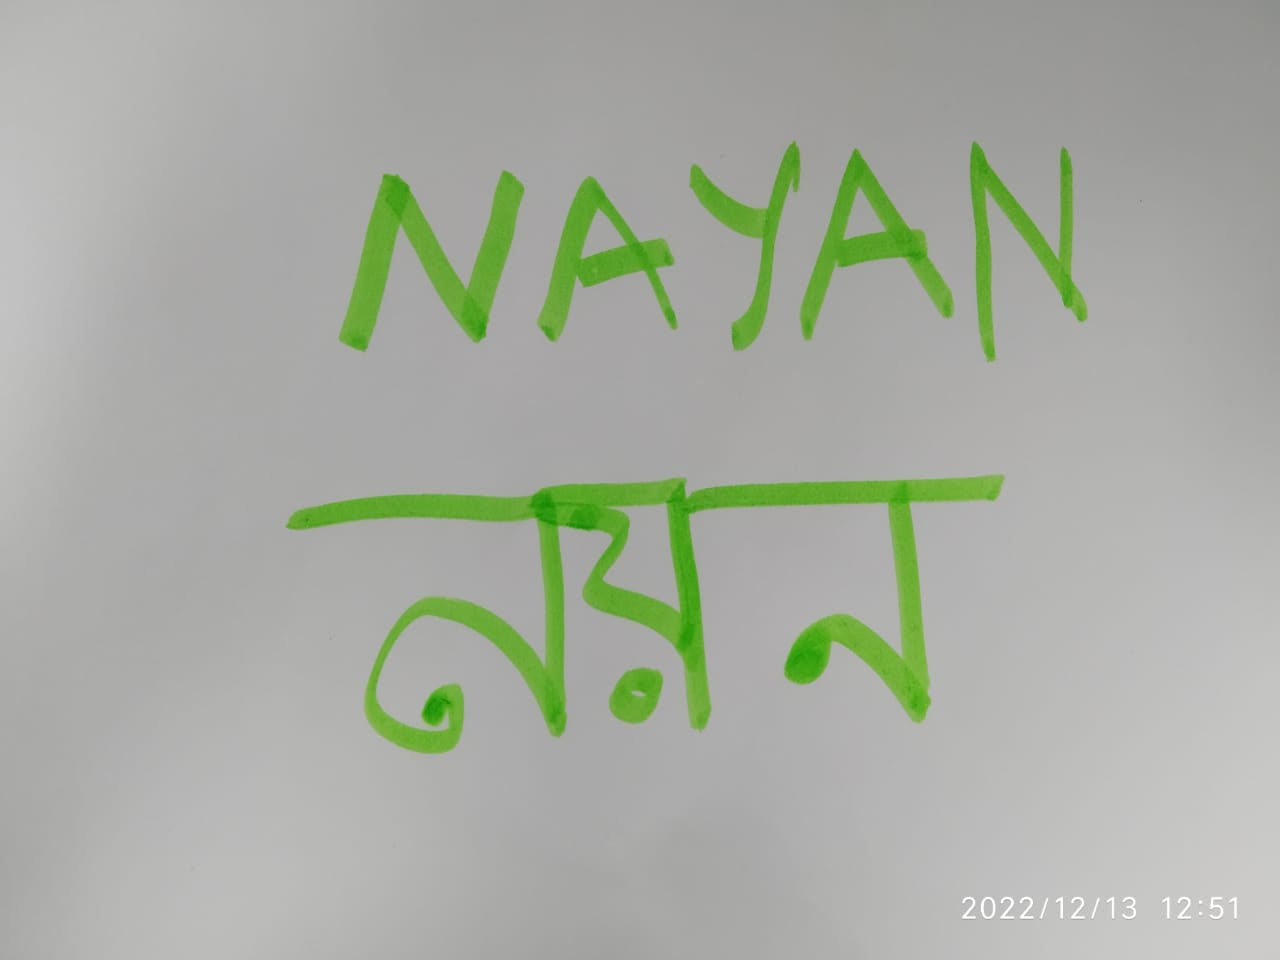 NAYAN
নয়ন
2022/12/13 12:51